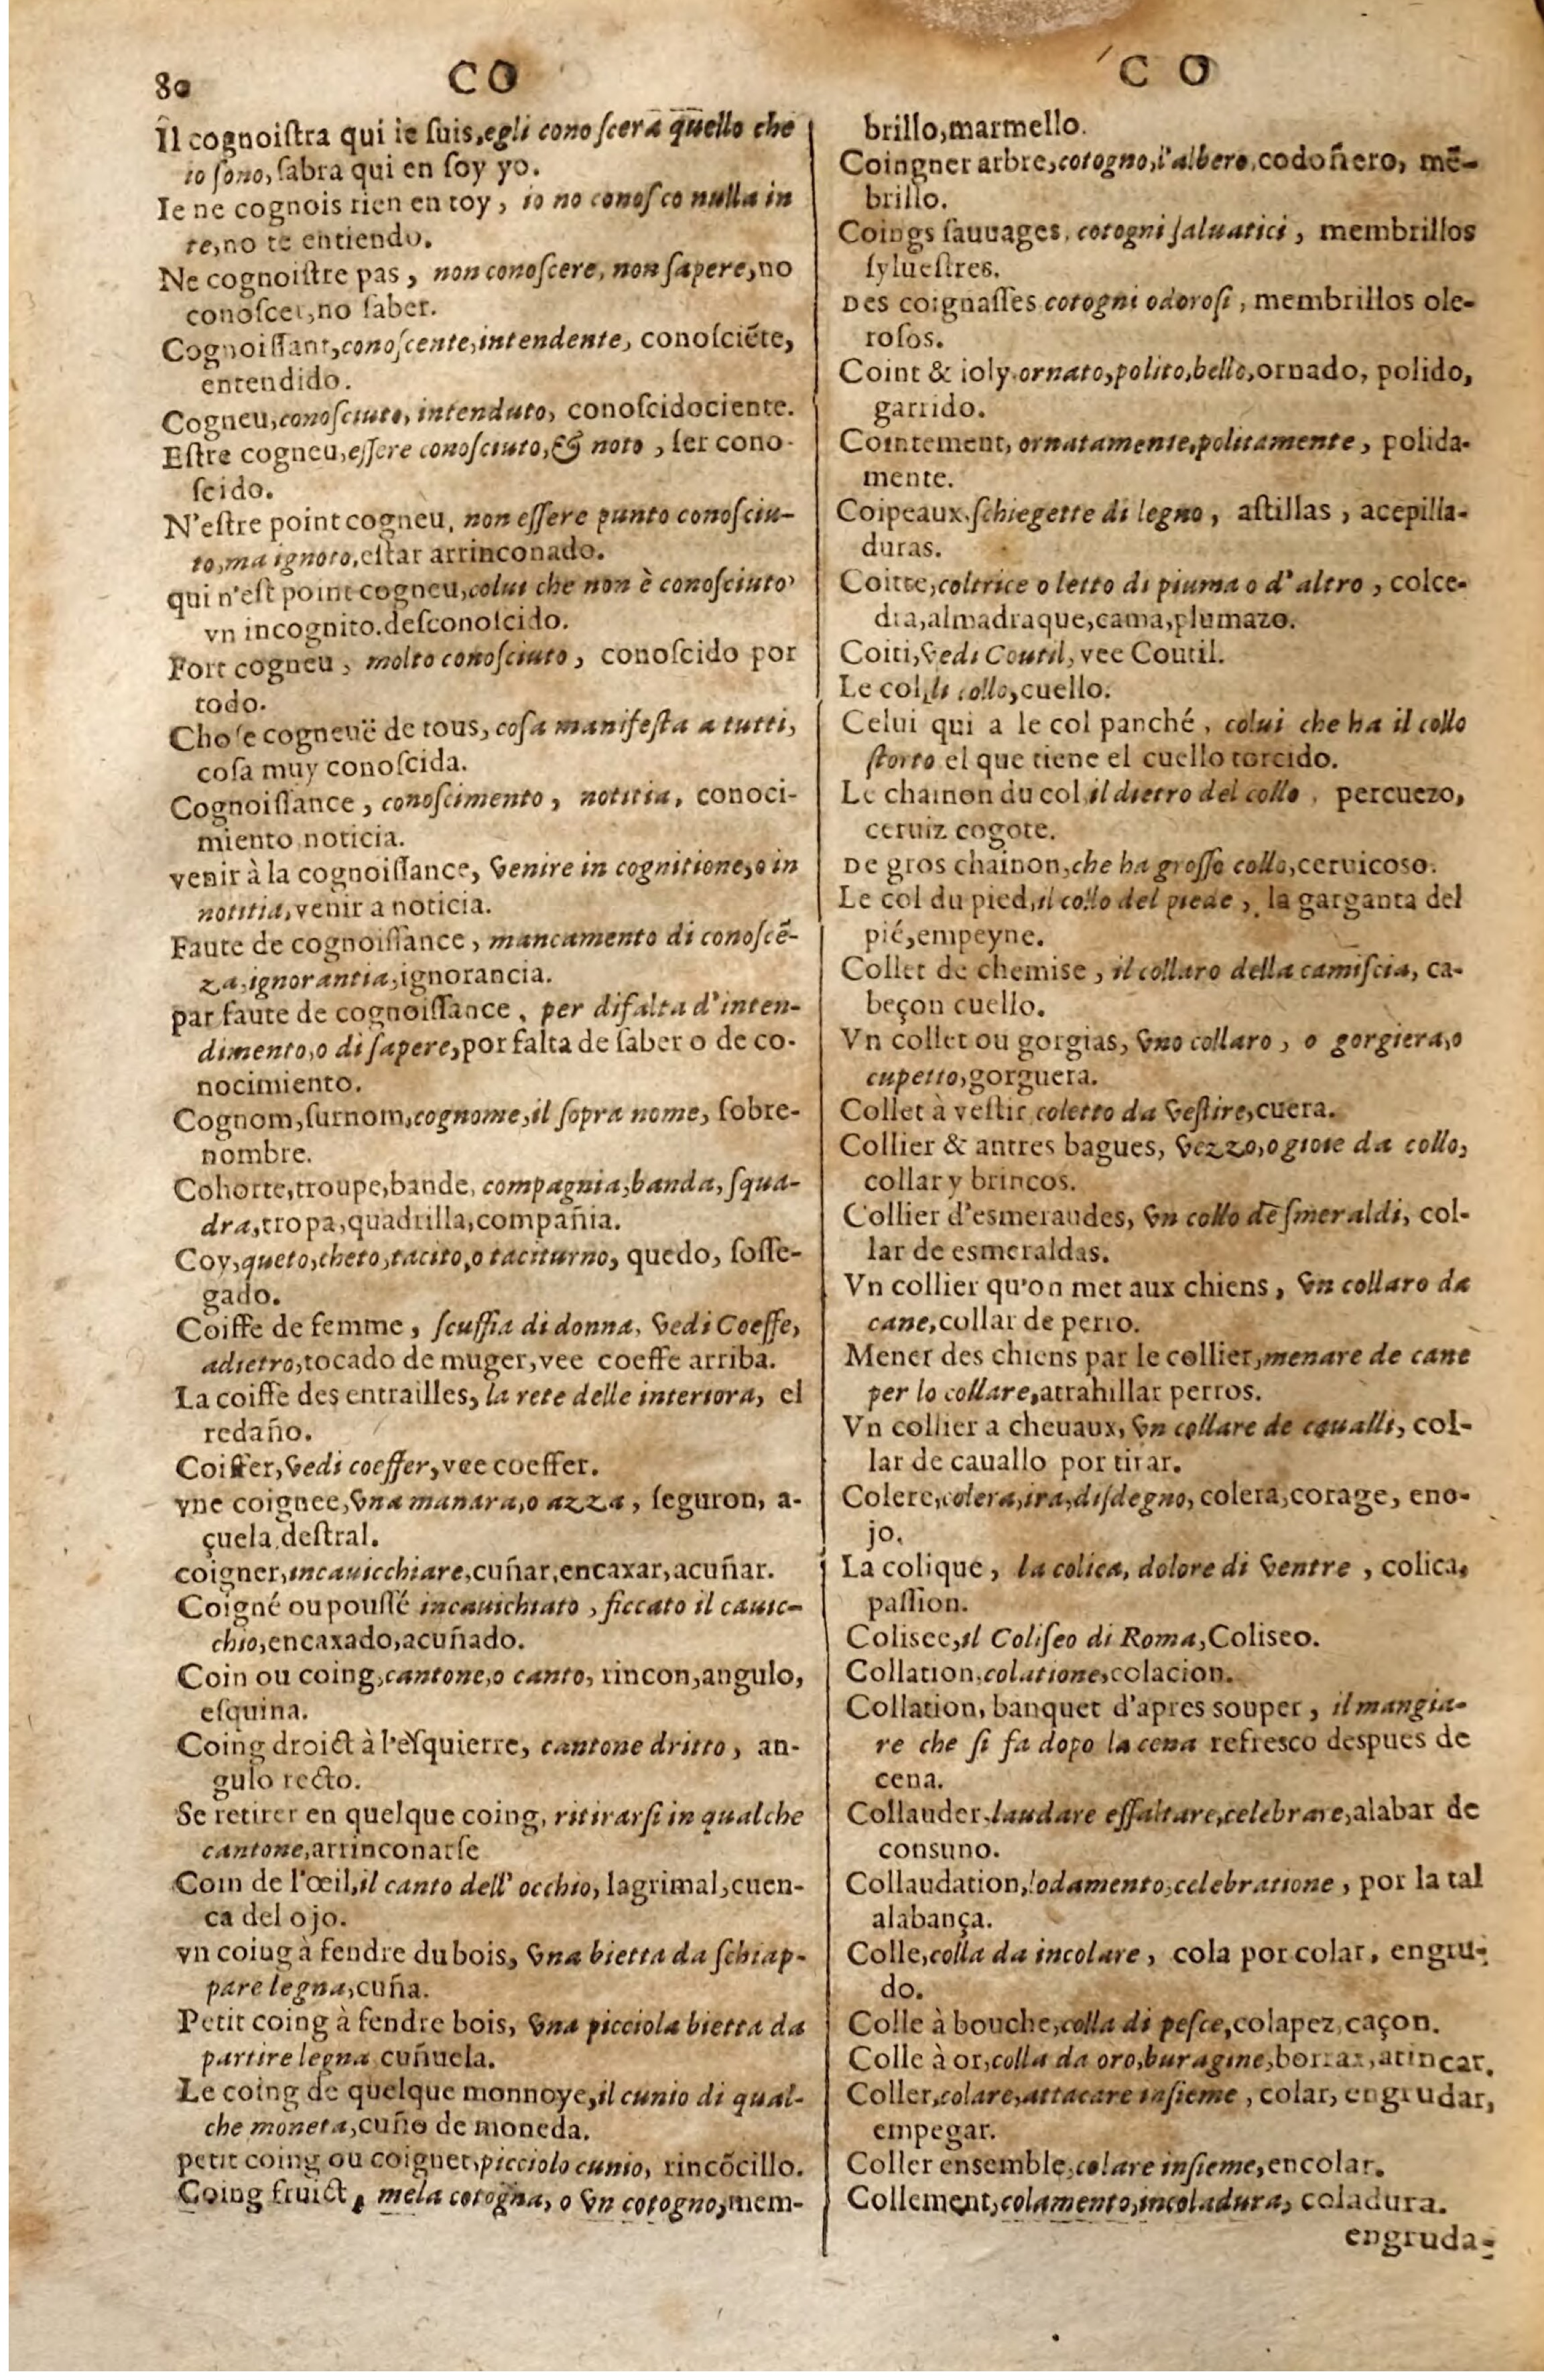 80 CO
Il cognoiſtra qui ie ſuis,egli conoſcerà quello che
io ſono,ſabra qui en ſoy yo.
Ie ne cognois rien en toy, io no conoſco nulla in
te,no te entiendo.
Ne cognoiſtre pas, non conoſcere, non ſapere,no
conoſcer,no ſaber.
Cognoiſſant,conoſcente,intendente, conoſciẽte,
entendido.
Cogneu,conoſciuto, intenduto, conoſcidociente.
Eſtre cogneu,eſſere conoſciuto,& noto, ſer cono-
ſcido.
N'eſtre point cogneu, non eſſere punto conoſciu-
to,ma ignoto,eſtar arrinconado.
qui n'eſt point cogneu,colui che non è conoſciuto,
vn incognito.deſconoſcido.
Fort cogneu, molto conoſciuto, conoſcido por
todo.
Choſe cogneuë de tous, coſa manifeſta a tutti,
coſa muy conoſcida.
Cognoiſſance, conoſcimento, notitia, conoci-
miento noticia.
venir à la cognoiſſance, venire in cognitione,o in
notitia,venir a noticia.
Faute de cognoiſſance, mancamento di conoſcẽ-
za,ignorantia,ignorancia.
par faute de cognoiſſance, per difalta d'inten-
dimento,o di ſapere,por falta de ſaber o de co-
nocimiento.
Cognom,ſurnom,cognome,il ſopra nome, ſobre-
nombre.
Cohorte,troupe,bande, compagnia,banda, ſqua-
dra,tropa,quadrilla,compañia.
Coy,queto,cheto,tacito,o taciturno, quedo, ſoſſe-
gado.
Coiffe de femme, ſcuffia di donna, vedi Coeffe,
adietro,tocado de muger,vee coeffe arriba.
La coiffe des entrailles, la rete delle interiora, el
redaño.
Coiffer,vedi coeffer,vee coeffer.
vne coignee,vna manara,o azza, ſeguron, a-
çuela,deſtral.
coigner,incauicchiare,cuñar,encaxar,acuñar.
Coigné ou pouſſé incauichiato, ficcato il cauic-
chio,encaxado,acuñado.
Coin ou coing,cantone,o canto, rincon,angulo,
eſquina.
Coing droict à l'eſquierre, cantone dritto, an-
gulo recto.
Se retirer en quelque coing, ritirarſi in qualche
cantone,arrinconarſe
Coin de l'œil,il canto dell' occhio, lagrimal,cuen-
ca del ojo.
vn coiug à fendre du bois, vna bietta da ſchiap-
pare legna,cuña.
Petit coing à fendre bois, vna picciola bietta da
partire legna cuñuela.
Le coing de quelque monnoye,il cunio di qual-
che moneta,cuño de moneda.
petit coing ou coignet,picciolo cunio, rincõcillo.
Coing fruict, mela cotogna, o vn cotogno,mem-
CO
brillo,marmello.
Coingner arbre,cotogno,l'albero,codoñero, mẽ-
brillo.
Coings ſauuages, cotogni ſaluatici, membrillos
ſylueſtres.
Des coignaſſes cotogni odoroſi, membrillos ole-
roſos.
Coint & ioly,ornato,polito,bello,ornado, polido,
garrido.
Cointement, ornatamente,politamente, polida-
mente.
Coipeaux,ſchiegette di legno, aſtillas, acepilla-
duras.
Coitte,coltrice o letto di piuma o d'altro, colce-
dra,almadraque,cama,plumazo.
Coiti,vedi Coutil, vee Coutil.
Le col,li collo,cuello.
Celui qui a le col panché, colui che ha il collo
ſtorto el que tiene el cuello torcido.
Le chainon du col il dietro del collo, percuezo,
ceruiz cogote.
De gros chainon,che ha groſſo collo,ceruicoso.
Le col du pied,il collo del piede, la garganta del
pié,empeyne.
Collet de chemise, il collaro della camiſcia, ca-
beçon cuello.
Vn collet ou gorgias, vno collaro, o gorgiera,o
cupetto,gorguera.
Collet à veſtir coletto da veſtire,cuera.
Collier & antres bagues, vezzo,o gioie da collo,
collar y brincos.
Collier d'esmeraudes, vn collo de ſmeraldi, col-
lar de esmeraldas.
Vn collier qu'on met aux chiens, vn collaro da
cane,collar de perro.
Mener des chiens par le collier,menare de cane
per lo collare,atrahillar perros.
Vn collier a cheuaux, vn collare de caualli, col-
lar de cauallo por tirar.
Colere,colera,ira,diſdegno, colera,corage, eno-
jo.
La colique, la colica, dolore di ventre, colica,
paſſion.
Colisee,il Coliſeo di Roma,Coliseo.
Collation,colatione,colacion.
Collation, banquet d'apres souper, il mangia-
re che ſi fa dopo la cena refresco despues de
cena.
Collauder,laudare eſſaltare,celebrare,alabar de
consuno.
Collaudation,lodamento,celebratione, por la tal
alabança.
Colle,colla da incolare, cola por colar, engru-
do.
Colle à bouche,colla di peſce,colapez,caçon.
Colle à or,colla da oro,buragine,borrax,atincar.
Coller,colare,attacare inſieme, colar, engrudar,
empegar.
Coller ensemble,colare inſieme,encolar.
Collement,colamento,incoladura, coladura.
engruda-